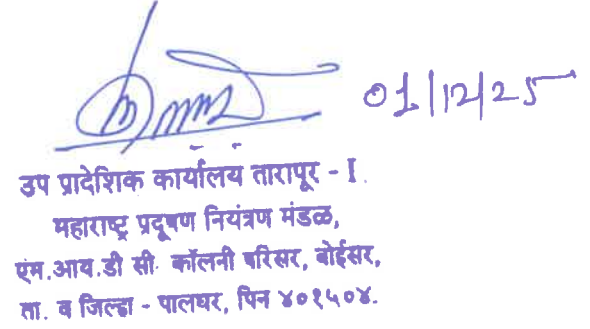 01/12/25
उप प्रादेशिक कार्यालय तारापूर - I.
महाराष्ट्र प्रदूषण नियंत्रण मंडळ,
एम.आय.डी सी. कॉलनी परिसर, बोईसर,
ता. व जिल्हा - पालघर, पिन ४०१५०४.